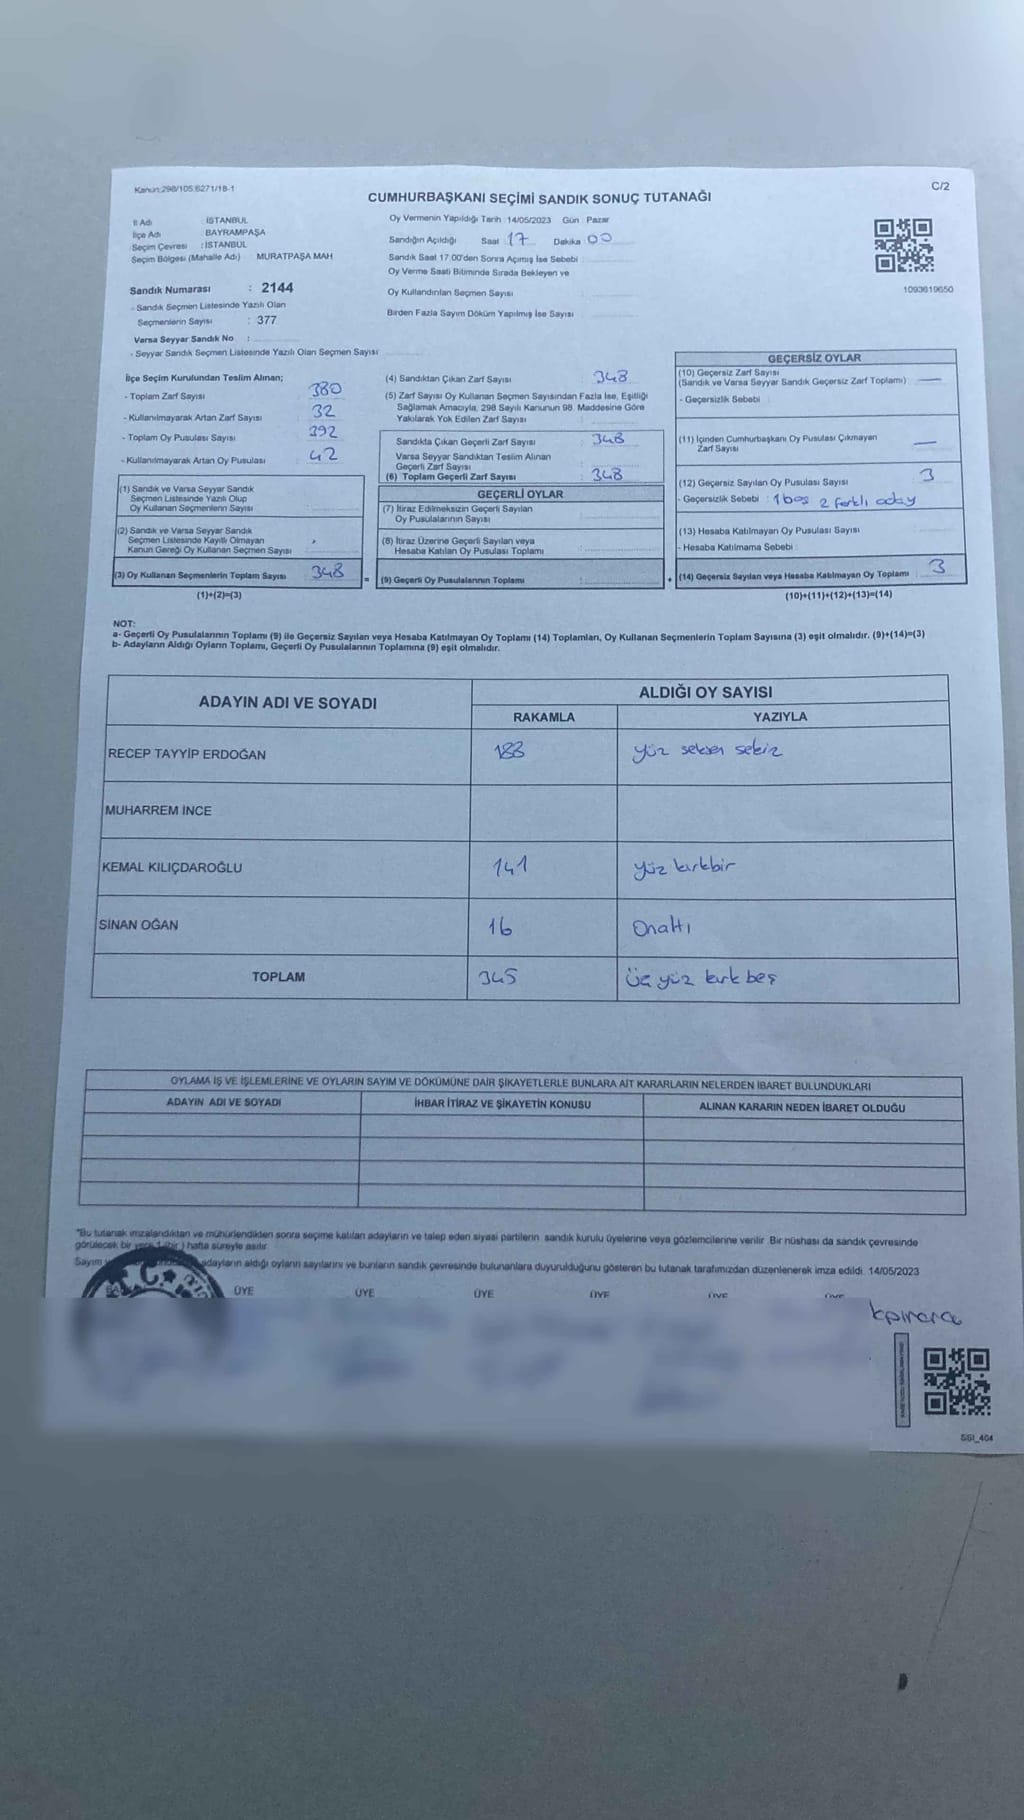 Kanun:298/105;6271/18-1
C/2
CUMHURBAŞKANI SEÇİMİ SANDIK SONUÇ TUTANAĞI
İl Adı : İSTANBUL
İlçe Adı : BAYRAMPAŞA
Seçim Çevresi : İSTANBUL
Seçim Bölgesi (Mahalle Adı) MURATPAŞA MAH
Sandık Numarası : 2144
- Sandık Seçmen Listesinde Yazılı Olan
Seçmenlerin Sayısı : 377
Varsa Seyyar Sandık No :
- Seyyar Sandık Seçmen Listesinde Yazılı Olan Seçmen Sayısı
Oy Vermenin Yapıldığı Tarih :14/05/2023 Gün : Pazar
Sandığın Açıldığı Saat : 17 Dakika : 00
Sandık Saat 17:00'den Sonra Açımış İse Sebebi :
Oy Verme Saati Bitiminde Sırada Bekleyen ve
Oy Kullandırılan Seçmen Sayısı :
Birden Fazla Sayım Döküm Yapılmış İse Sayısı :
1093619650
İlçe Seçim Kurulundan Teslim Alınan;
- Toplam Zarf Sayısı : 380
- Kullanılmayarak Artan Zarf Sayısı : 32
- Toplam Oy Pusulası Sayısı : 392
- Kullanılmayarak Artan Oy Pusulası : 42
(1) Sandık ve Varsa Seyyar Sandık
Seçmen Listesinde Yazılı Olup
Oy Kullanan Seçmenlerin Sayısı :
(2) Sandık ve Varsa Seyyar Sandık
Seçmen Listesinde Kayıtlı Olmayan
Kanun Gereği Oy Kullanan Seçmen Sayısı :
(3) Oy Kullanan Seçmenlerin Toplam Sayısı : 348
(1)+(2)=(3)
=
(4) Sandıktan Çıkan Zarf Sayısı : 348
(5) Zarf Sayısı Oy Kullanan Seçmen Sayısından Fazla İse, Eşitliği
Sağlamak Amacıyla, 298 Sayılı Kanunun 98. Maddesine Göre
Yakılarak Yok Edilen Zarf Sayısı :
Sandıkta Çıkan Geçerli Zarf Sayısı : 348
Varsa Seyyar Sandıktan Teslim Alınan
Geçerli Zarf Sayısı :
(6) Toplam Geçerli Zarf Sayısı : 348
GEÇERLİ OYLAR
(7) İtiraz Edilmeksizin Geçerli Sayılan
Oy Pusulalarının Sayısı :
(8) İtiraz Üzerine Geçerli Sayılan veya
Hesaba Katılan Oy Pusulası Toplamı :
(9) Geçerli Oy Pusulalarının Toplamı :
+
GEÇERSİZ OYLAR
(10) Geçersiz Zarf Sayısı
(Sandık ve Varsa Seyyar Sandık Geçersiz Zarf Toplamı) : —
- Geçersizlik Sebebi :
(11) İçinden Cumhurbaşkanı Oy Pusulası Çıkmayan
Zarf Sayısı : —
(12) Geçersiz Sayılan Oy Pusulası Sayısı : 3
- Geçersizlik Sebebi : 1 boş 2 farklı aday
(13) Hesaba Katılmayan Oy Pusulası Sayısı
- Hesaba Katılmama Sebebi :
(14) Geçersiz Sayılan veya Hesaba Katılmayan Oy Toplamı : 3
(10)+(11)+(12)+(13)=(14)
NOT:
a- Geçerli Oy Pusulalarının Toplamı (9) ile Geçersiz Sayılan veya Hesaba Katılmayan Oy Toplamı (14) Toplamları, Oy Kullanan Seçmenlerin Toplam Sayısına (3) eşit olmalıdır. (9)+(14)=(3)
b- Adayların Aldığı Oyların Toplamı, Geçerli Oy Pusulalarının Toplamına (9) eşit olmalıdır.
ADAYIN ADI VE SOYADI
ALDIĞI OY SAYISI
RAKAMLA YAZIYLA
RECEP TAYYİP ERDOĞAN 188 yüz seksen sekiz
MUHARREM İNCE
KEMAL KILIÇDAROĞLU 141 yüz kırkbir
SİNAN OĞAN 16 Onaltı
TOPLAM 345 üç yüz kırk beş
OYLAMA İŞ VE İŞLEMLERİNE VE OYLARIN SAYIM VE DÖKÜMÜNE DAİR ŞİKAYETLERLE BUNLARA AİT KARARLARIN NELERDEN İBARET BULUNDUKLARI
ADAYIN ADI VE SOYADI İHBAR İTİRAZ VE ŞİKAYETİN KONUSU ALINAN KARARIN NEDEN İBARET OLDUĞU
*Bu tutanak imzalandıktan ve mühürlendikten sonra seçime katılan adayların ve talep eden siyasi partilerin sandık kurulu üyelerine veya gözlemcilerine verilir. Bir nüshası da sandık çevresinde
görülecek bir yere 1 (bir) hafta süreyle asılır.
Sayım adayların aldığı oyların sayılarını ve bunların sandık çevresinde bulunanlara duyurulduğunu gösteren bu tutanak tarafımızdan düzenlenerek imza edildi. 14/05/2023
ÜYE ÜYE ÜYE ÜYE ÜYE ÜYE
SSI_404